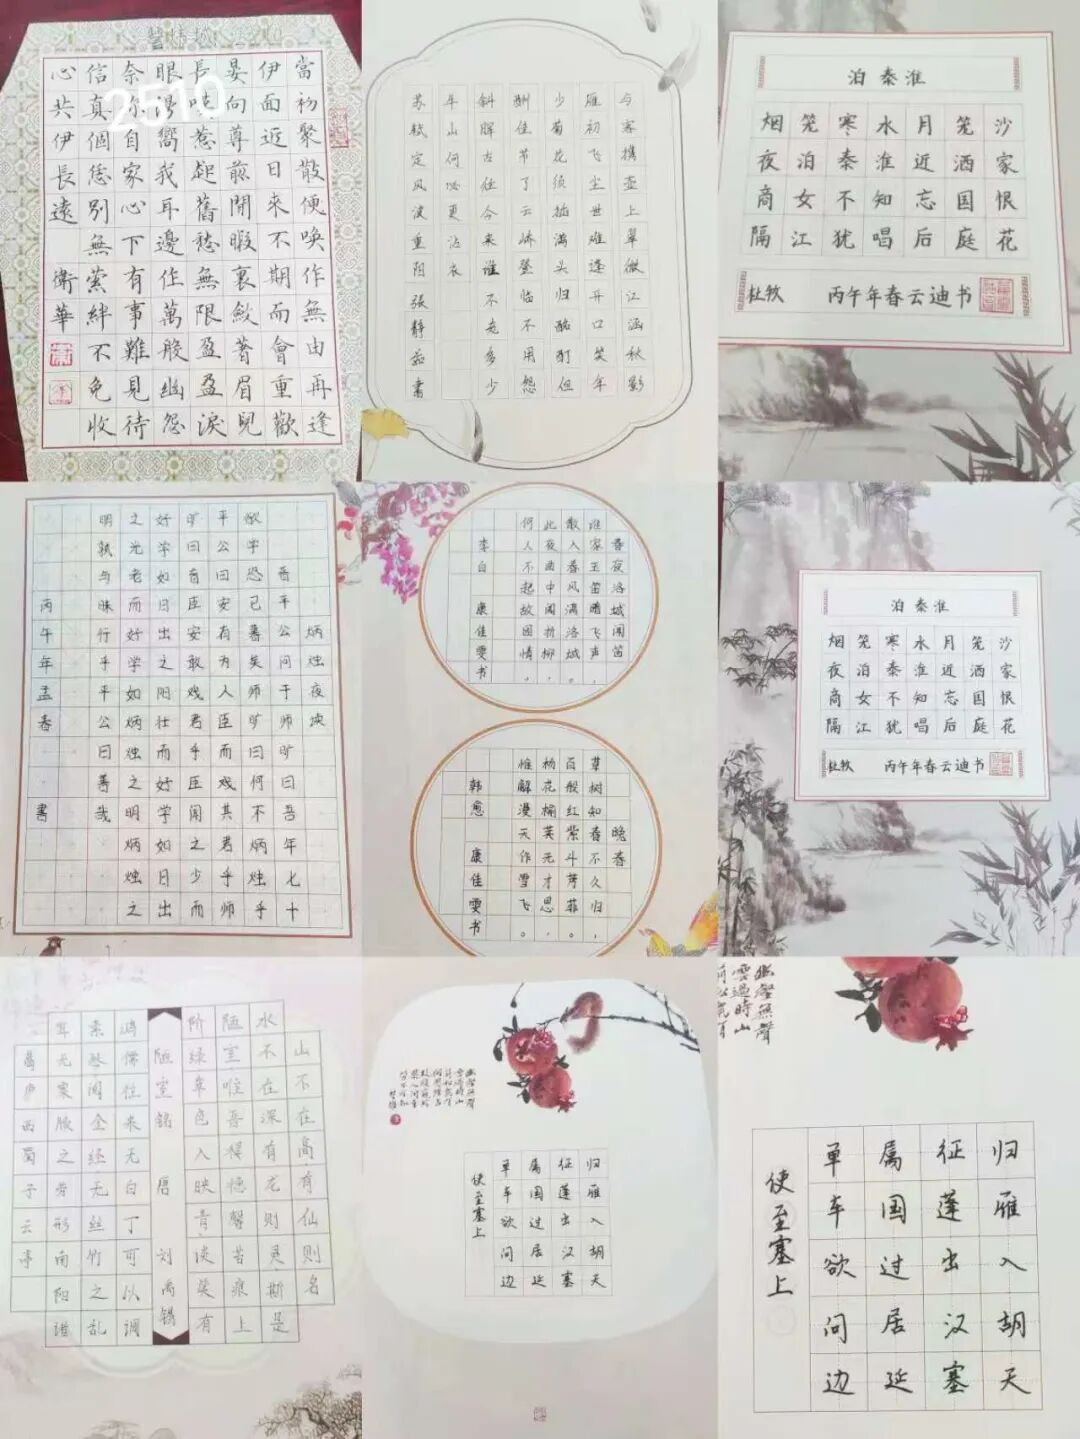 2510
當初聚散便喚作無由再逢
伊面近日來不期而會重歡
晏向尊前閒暇裏斂著眉兒
長嘆惹起舊愁無限盈盈淚
眼漫嚮我耳邊作萬般幽怨
奈你自家心下有事難見待
信真個恁別無縈絆不免收
心共伊長遠 衛華
与客携壶上翠微江涵秋影
雁初飞尘世难逢开口笑年
少菊花须插满头归酩酊但
酬佳节了云峤登临不用怨
斜晖古往今来谁不老多少
牛山何必更沾衣
苏轼定风波重阳 张静茹书
泊秦淮
烟笼寒水月笼沙
夜泊秦淮近酒家
商女不知忘国恨
隔江犹唱后庭花
杜牧 丙午年春云迪书
炳烛夜
晋平公问于师旷曰吾年七十
欲学恐已暮矣师旷曰何不炳烛乎
平公曰安有为人臣而戏其君乎师
旷曰盲臣安敢戏君乎臣闻之少而
好学如日出之阳壮而好学如日出
之光老而好学如炳烛之明炳烛之
明孰与昧行乎平公曰善哉
丙午年孟春 书
春夜洛城闻笛
谁家玉笛暗飞声,
散入春风满洛城。
此夜曲中闻折柳,
何人不起故园情。
李白 康佳雯书
晚春
草树知春不久归,
百般红紫斗芳菲。
杨花榆荚无才思,
惟解漫天作雪飞。
韩愈 康佳雯书
泊秦淮
烟笼寒水月笼沙
夜泊秦淮近酒家
商女不知忘国恨
隔江犹唱后庭花
杜牧 丙午年春云迪书
山不在高有仙则名
水不在深有龙则灵斯是
陋室唯吾德馨苔痕上
阶绿草色入映青谈笑有
陋室铭 唐 刘禹锡
鸿儒往来无白丁可以调
素琴阅金经无丝竹之乱
耳无案牍之劳形南阳诸
葛庐西蜀子云亭
归雁入胡天
征蓬出汉塞
属国过居延
单车欲问边
使至塞上
归雁入胡天
征蓬出汉塞
属国过居延
单车欲问边
使至塞上